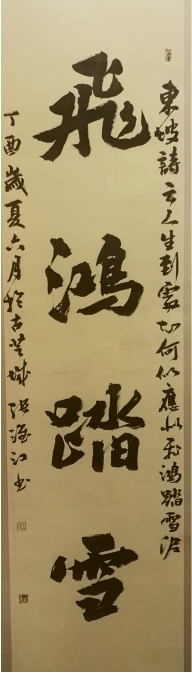 東坡詩云人生到處知何似應似飛鴻踏雪泥
飛鴻踏雪
丁酉歲夏六月於古城張江书